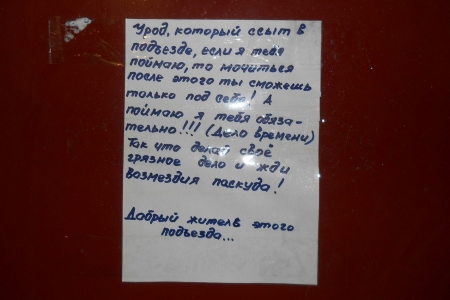 Урод, который ссыт в
подъезде, если я тебя
поймаю, то мочиться
после этого ты сможешь
только под себя! А
поймаю я тебя обяза-
тельно!!! (Дело времени)
Так что делай своё
грязное дело и жди
возмездия паскуда!
Добрый житель этого
подъезда...